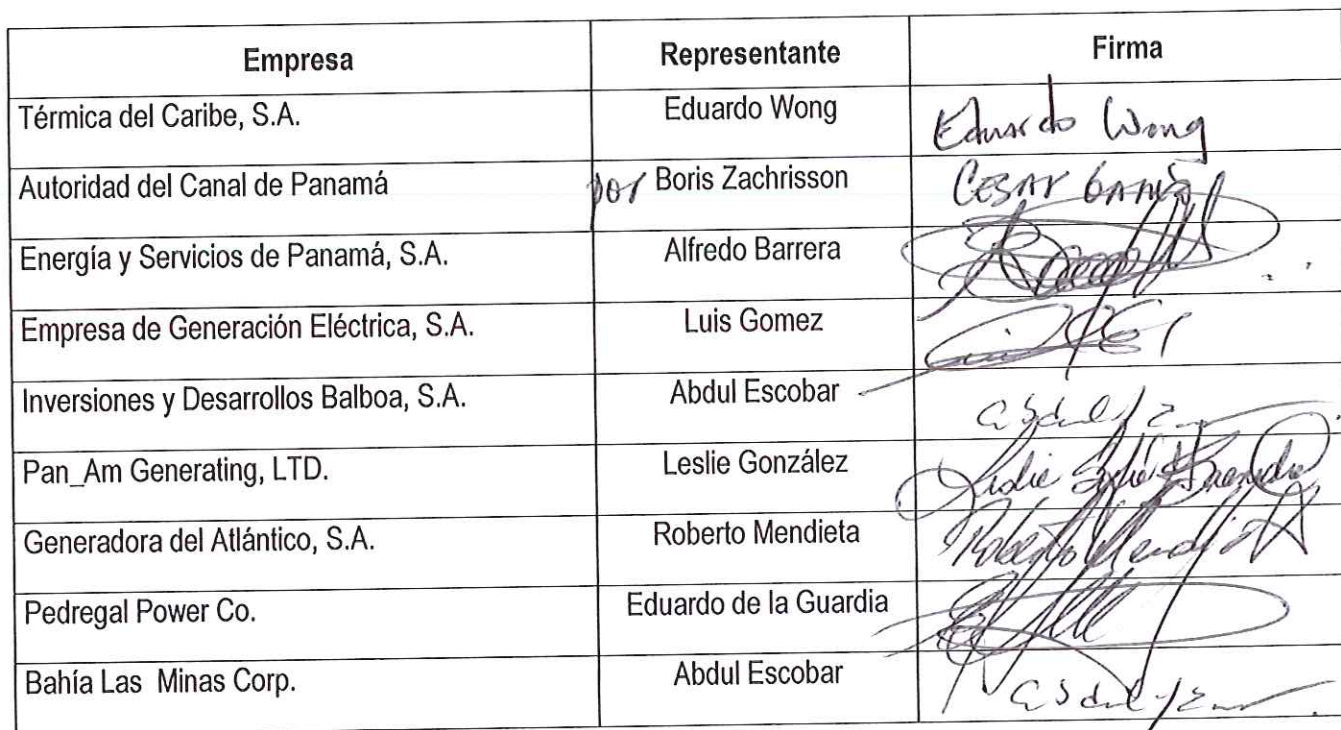 Empresa Representante Firma
Térmica del Caribe, S.A. Eduardo Wong Eduardo Wong
Autoridad del Canal de Panamá por Boris Zachrisson CESAR
Energía y Servicios de Panamá, S.A. Alfredo Barrera
Empresa de Generación Eléctrica, S.A. Luis Gomez
Inversiones y Desarrollos Balboa, S.A. Abdul Escobar
Pan_Am Generating, LTD. Leslie González
Generadora del Atlántico, S.A. Roberto Mendieta Roberto Mendieta
Pedregal Power Co. Eduardo de la Guardia
Bahía Las Minas Corp. Abdul Escobar